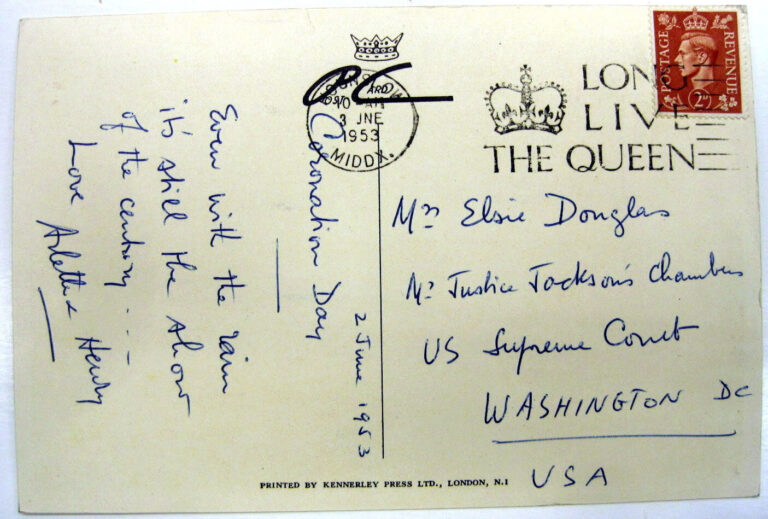 Coronation Day
2 June 1953
Even with the rain
it's still the show
of the century ...
Love Arlette & Henry
PC
HOUNSLOW
10 AM
3 JNE
1953
MIDDX.
LONG
LIVE
THE QUEEN
POSTAGE
REVENUE
2D
Mrs Elsie Douglas
Mr Justice Jackson's Chambers
US Supreme Court
WASHINGTON DC
USA
PRINTED BY KENNERLEY PRESS LTD., LONDON, N.1